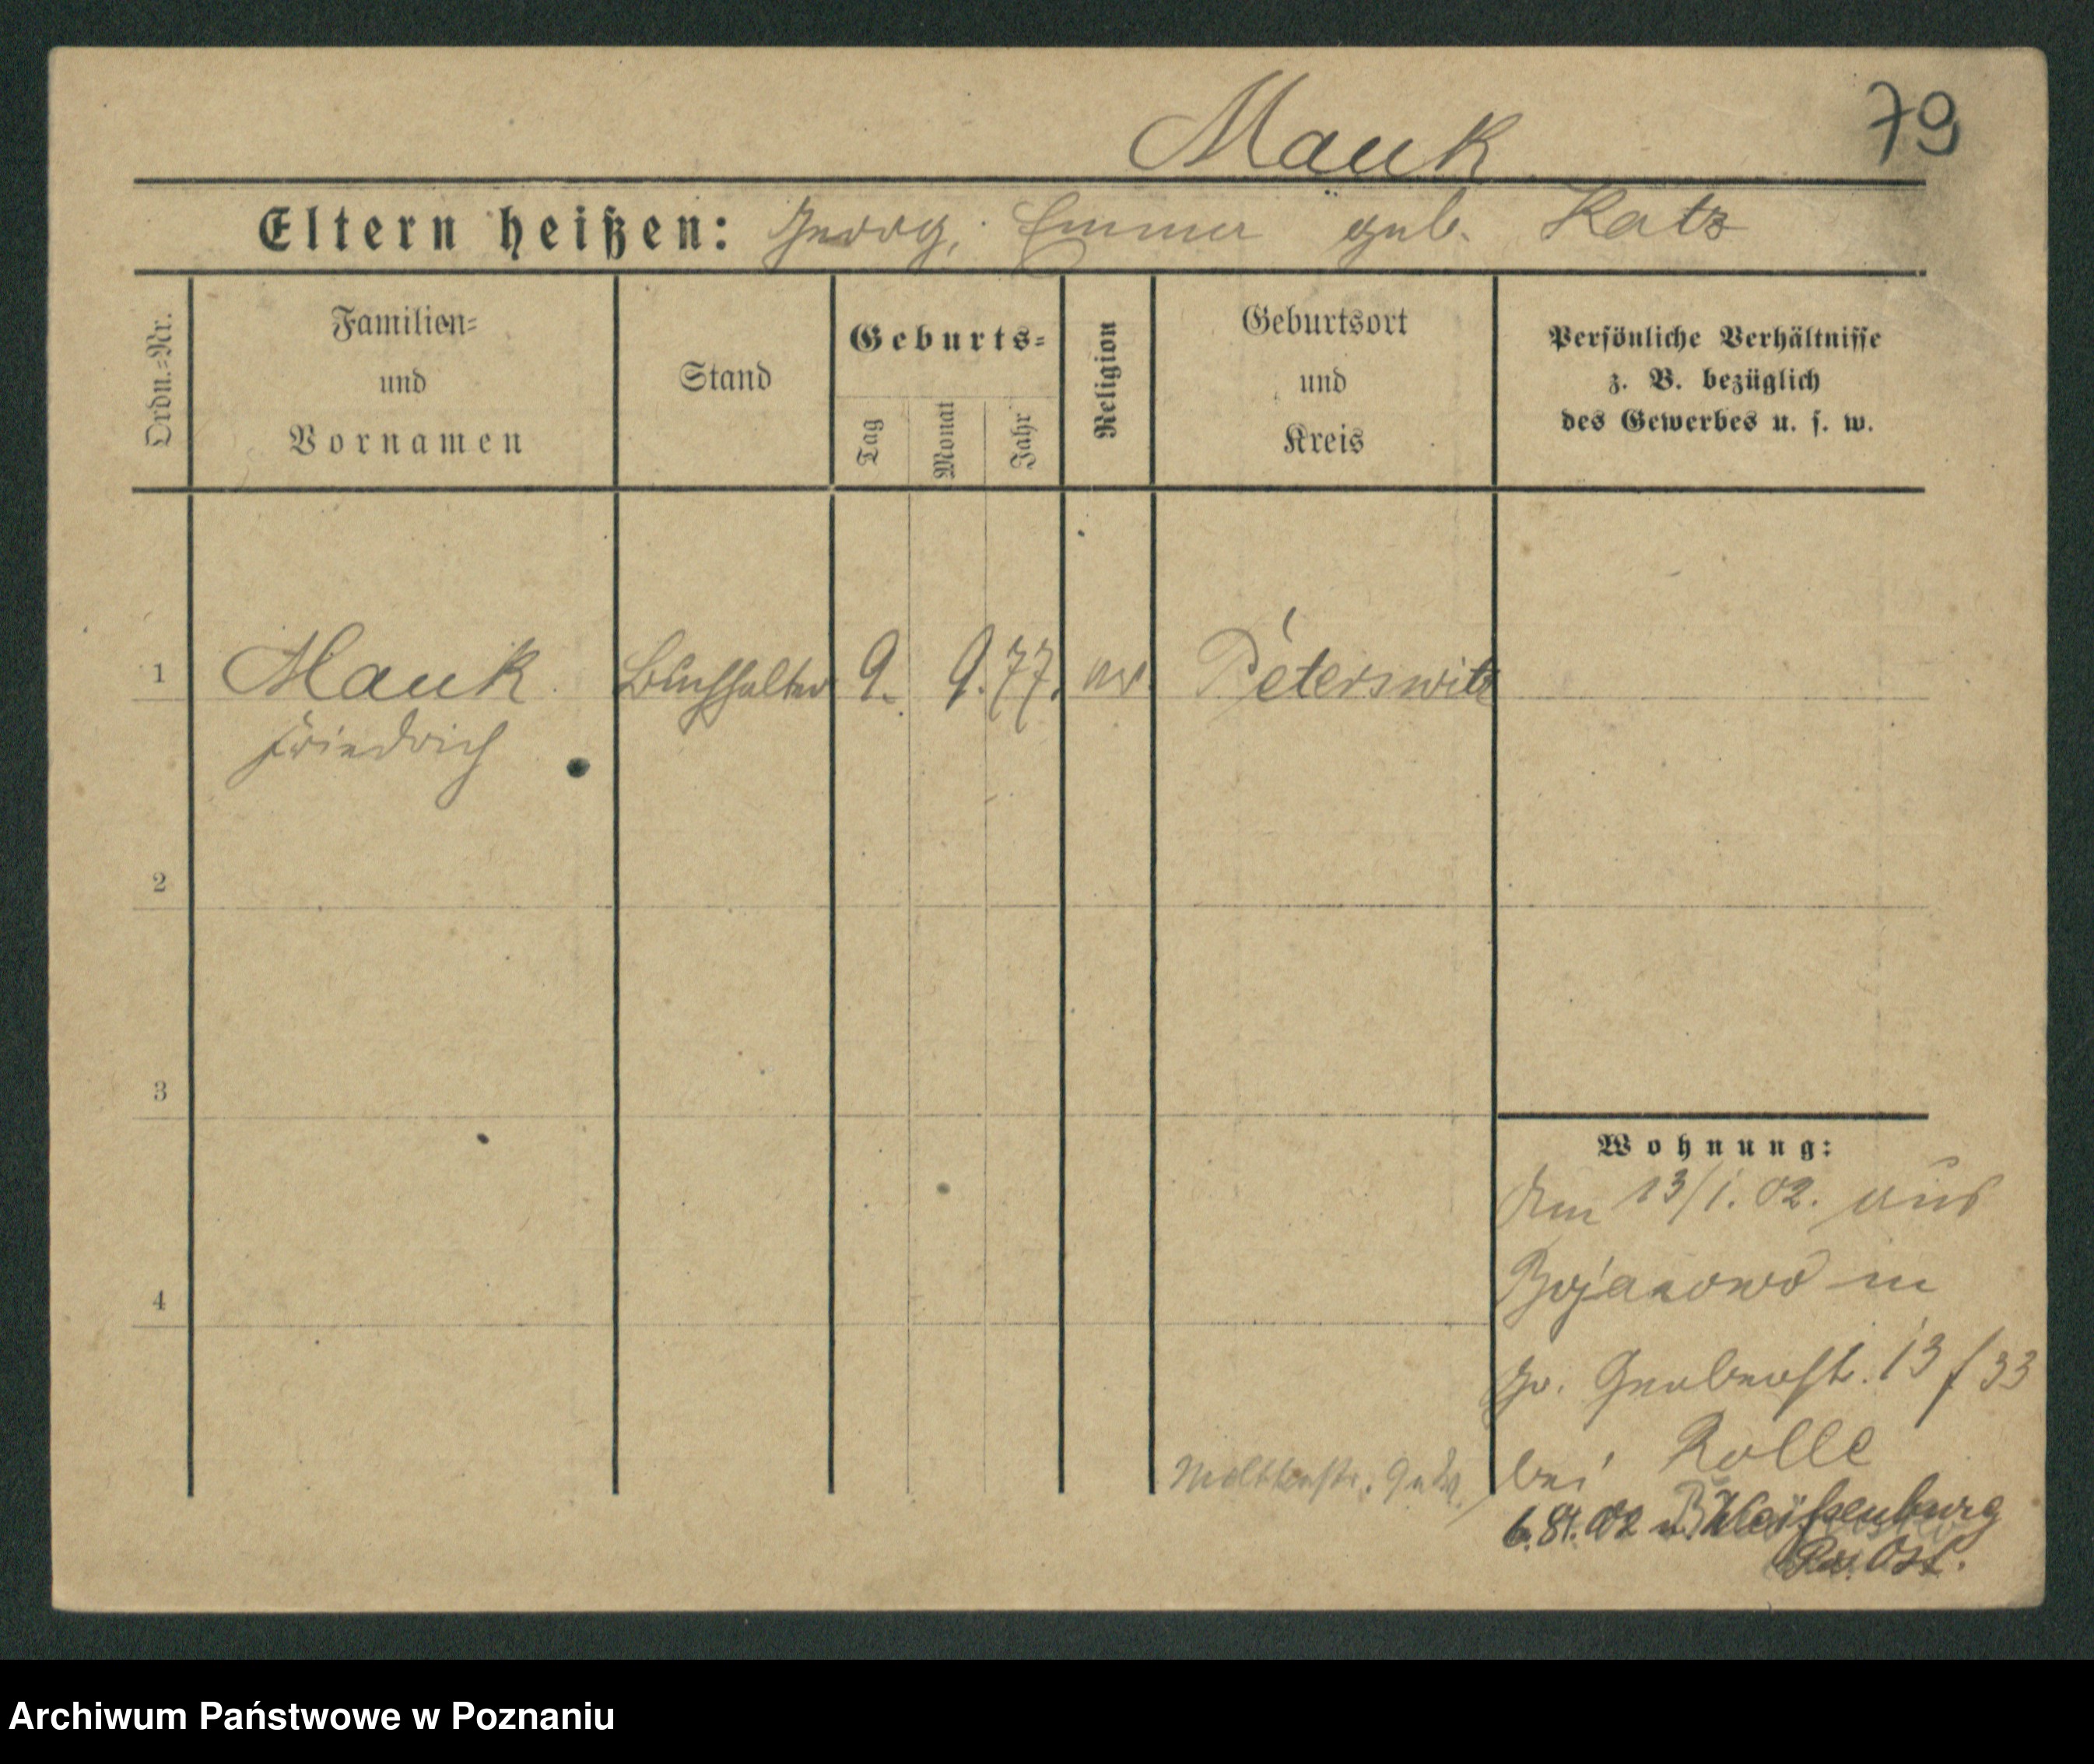 79
Mauk
Eltern heißen: Georg, Emma geb. Katz
Ordn.=Nr.
Familien=
und
Vornamen
Stand
Geburts=
Tag
Monat
Jahr
Religion
Geburtsort
und
Kreis
Persönliche Verhältnisse
z. B. bezüglich
des Gewerbes u. s. w.
1 Mauk Buchhalter 9. 9. 77. ev. Peterswitz
Friedrich
2
3
4
Wohnung:
13/1. 02. aus
Bojanowo in
Gr. Gerberstr. 13 / 33
bei Rolle
Moltkestr.
02 Weißenburg
Archiwum Państwowe w Poznaniu